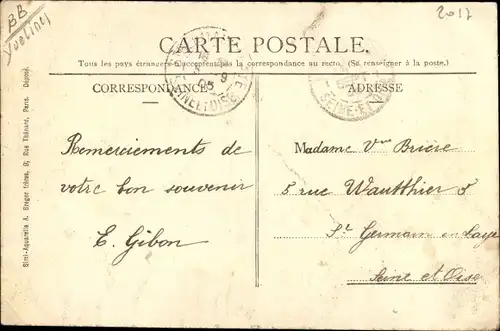 BB
Yvelines
2017
CARTE POSTALE.
Tous les pays étrangers n'acceptent pas la correspondance au recto. (Se renseigner à la poste.)
CORRESPONDANCE
Remerciements de
votre bon souvenir
E. Gibon
ADRESSE
Madame Vve Briere
5 rue Wautthier 5
St Germain en Laye
Seine et Oise
SEINE-ET-OISE
Simi-Aquarelle A. Breger frères, 9, Rue Thénard, Paris. Déposé.